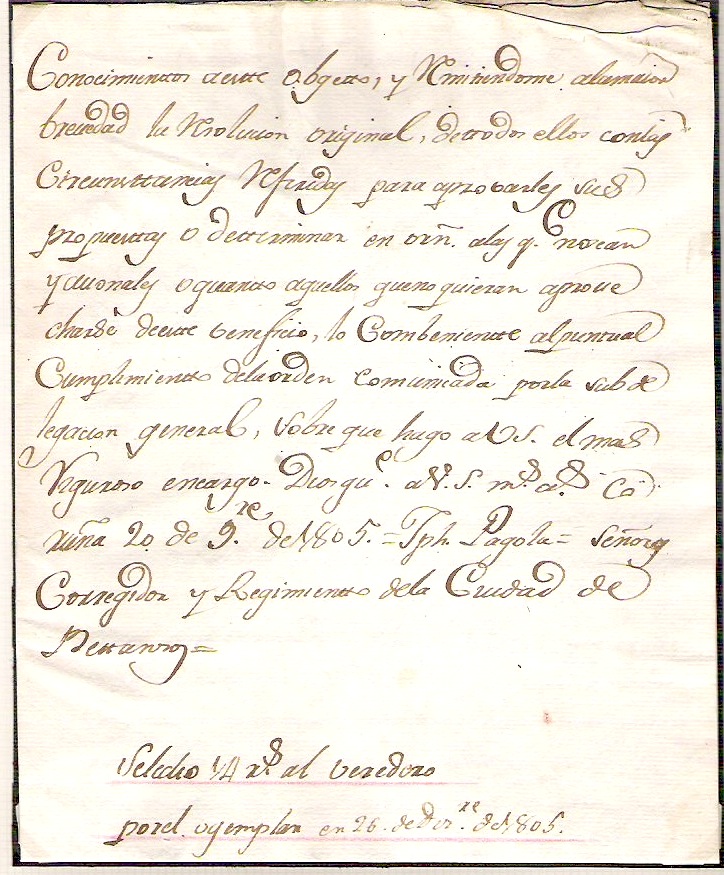 Conocimientos a este Obgetto, y Remitiendome ala maior
brevedad la Resolucion original, de todos ellos con las
Circunsttancias Referidas para aprovarles sus
propuestas o determinar en orñ. alas q.e no sean
y quanto aquellos que no quieran aprove
charse de este beneficio, lo Combeniente al puntual
Cumplimientto dela orden comunicada por la subde
legacion general, sobre que hago a V.S. el mas
Riguroso encargo. Dios gu.e a V.S. m.s a.s Co
ruña 20 de 9.re de 1805. = Jph. Pagola = Señores
Corregidor y Regimientto dela Ciudad de
Bettanzos =
Se ledio 14 r.s al veredero
por el exemplar en 26 de Dez.re de 1805.